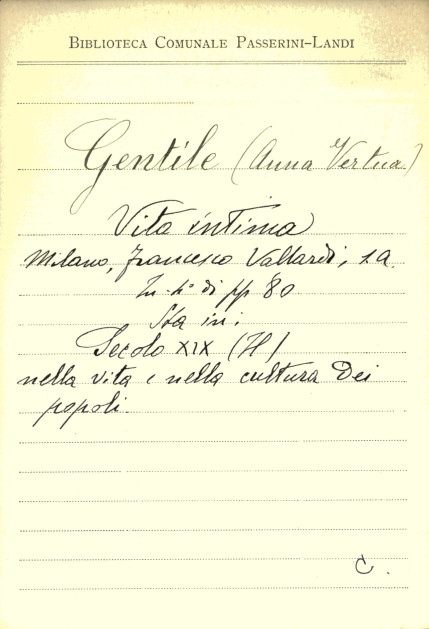 BIBLIOTECA COMUNALE PASSERINI-LANDI
Gentile (Anna Vertua)
Vita intima
Milano, Francesco Vallardi, s.a.
In-4° di pp 80
Sta in:
Secolo XIX (Il)
nella vita e nella cultura dei
popoli.
C.